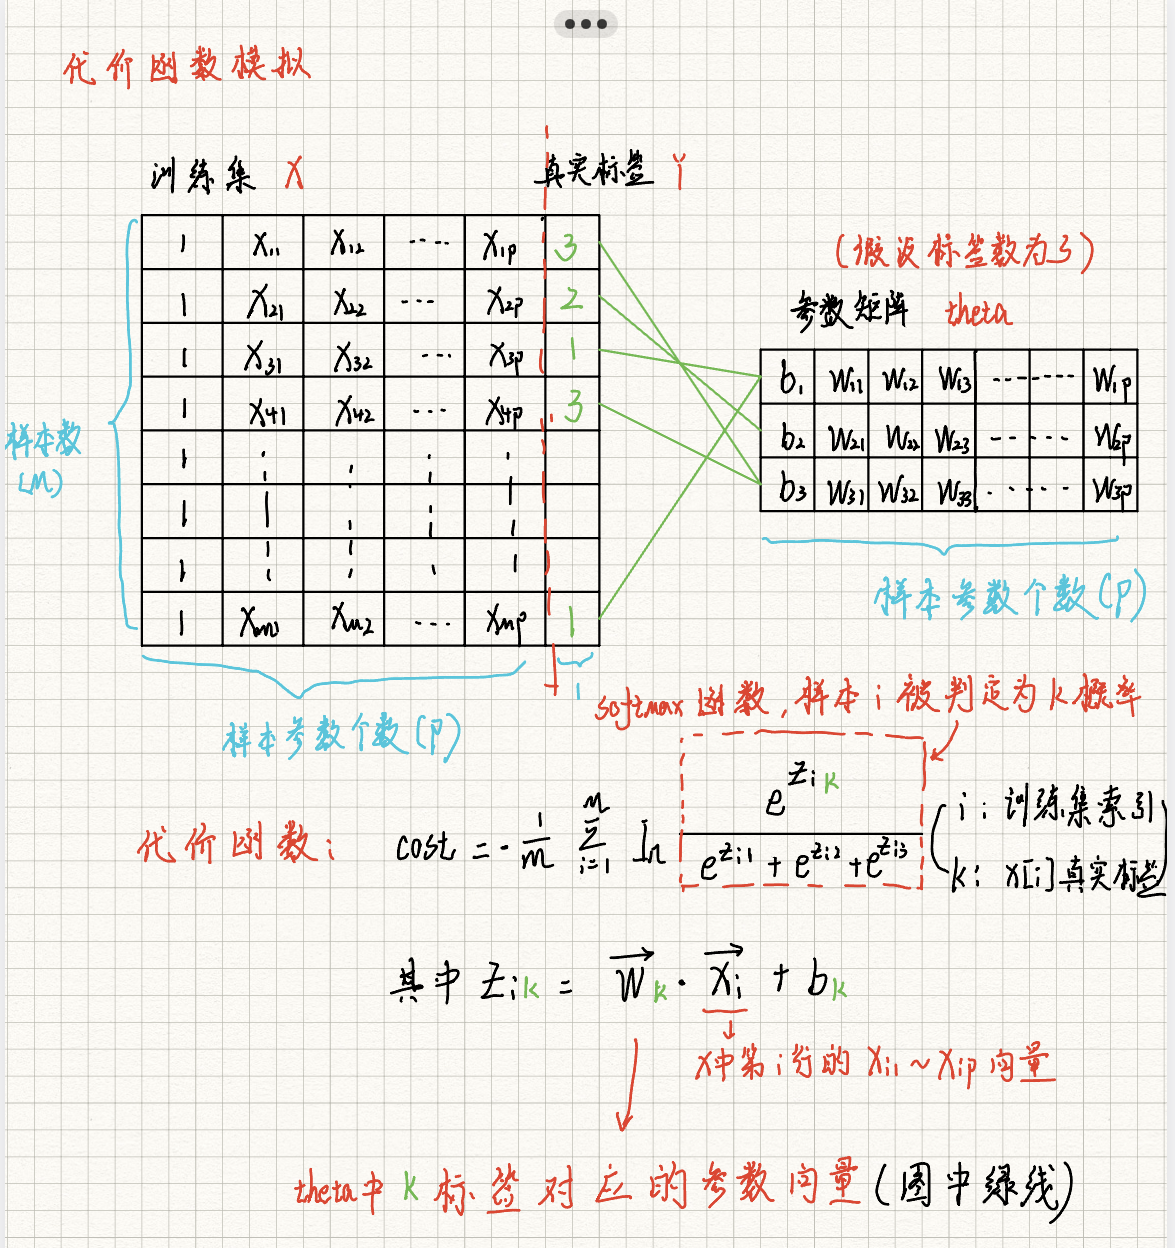 代价函数模拟
训练集 X
真实标签 Y
1 X11 X12 ···· X1p 3
1 X21 X22 ···· X2p 2
1 X31 X32 ···· X3p 1
1 X41 X42 ···· X4p 3
1
1
1
1 Xm1 Xm2 ···· Xmp 1
样本数
(m)
样本参数个数(P)
1
(假设标签数为3)
参数矩阵 theta
b1 W11 W12 W13 ········ W1p
b2 W21 W22 W23 ······ W2p
b3 W31 W32 W33 ······ W3p
样本参数个数(P)
softmax 函数,样本 i 被判定为 k 概率
代价函数: cost = - 1/m Σ(i=1→m) ln e^Zik / (e^Zi1 + e^Zi2 + e^Zi3)
i: 训练集索引
k: X[i]真实标签
其中 Zik = Wk · Xi + bk
X中第i行的 Xi1~Xip 向量
theta中 k 标签对应的参数向量(图中绿线)